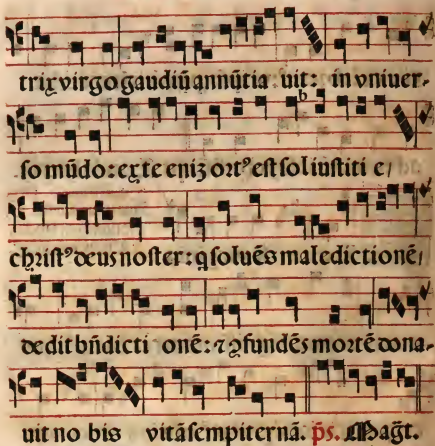 trix virgo gaudiū annūtia uit: in vniuer-
so mūdo: ex te eniʒ ortꝰ est sol iustiti e
christꝰ deus noster: q soluēs maledictionē
dedit bn̄dicti onē: ⁊ ꝯfundēs mortē dona-
uit no bis vitā sempiternā. ps. Mag̃t.